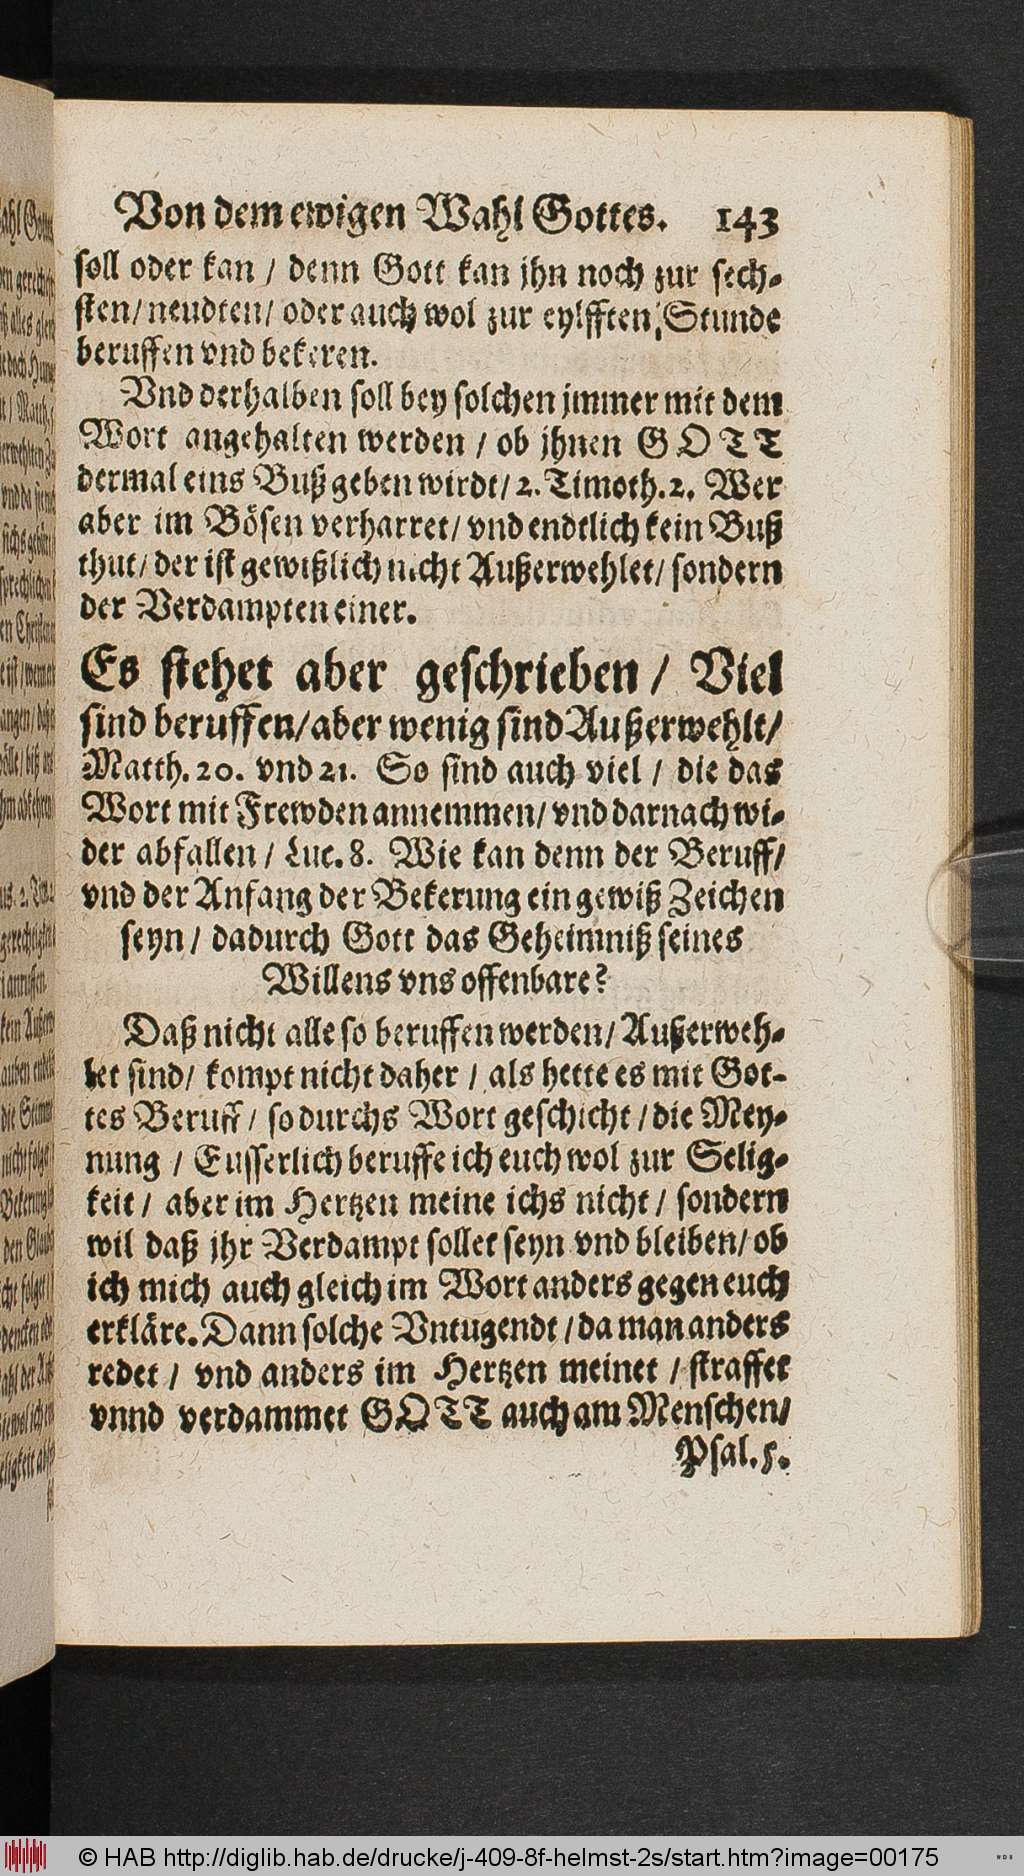 Von dem ewigen Wahl Gottes. 143
soll oder kan / denn Gott kan jhn noch zur sech-
sten / neudten / oder auch wol zur eylfften Stunde
beruffen vnd bekeren.
Vnd derhalben soll bey solchen jmmer mit dem
Wort angehalten werden / ob jhnen GOTT
dermal eins Buß geben wirdt / 2. Timoth. 2. Wer
aber im Bösen verharret / vnd endtlich kein Buß
thut / der ist gewißlich nicht Außerwehlet / sondern
der Verdampten einer.
Es stehet aber geschrieben / Viel
sind beruffen / aber wenig sind Außerwehlt /
Matth. 20. vnd 21. So sind auch viel / die das
Wort mit Frewden annemmen / vnd darnach wi-
der abfallen / Luc. 8. Wie kan denn der Beruff /
vnd der Anfang der Bekerung ein gewiß Zeichen
seyn / dadurch Gott das Geheimniß seines
Willens vns offenbare?
Daß nicht alle so beruffen werden / Außerweh-
let sind / kompt nicht daher / als hette es mit Got-
tes Beruff / so durchs Wort geschicht / die Mey-
nung / Eusserlich beruffe ich euch wol zur Selig-
keit / aber im Hertzen meine ichs nicht / sondern
wil daß jhr Verdampt sollet seyn vnd bleiben / ob
ich mich auch gleich im Wort anders gegen euch
erkläre. Dann solche Vntugendt / da man anders
redet / vnd anders im Hertzen meinet / straffet
vnnd verdammet GOTT auch am Menschen /
Psal. 5.
© HAB http://diglib.hab.de/drucke/j-409-8f-helmst-2s/start.htm?image=00175